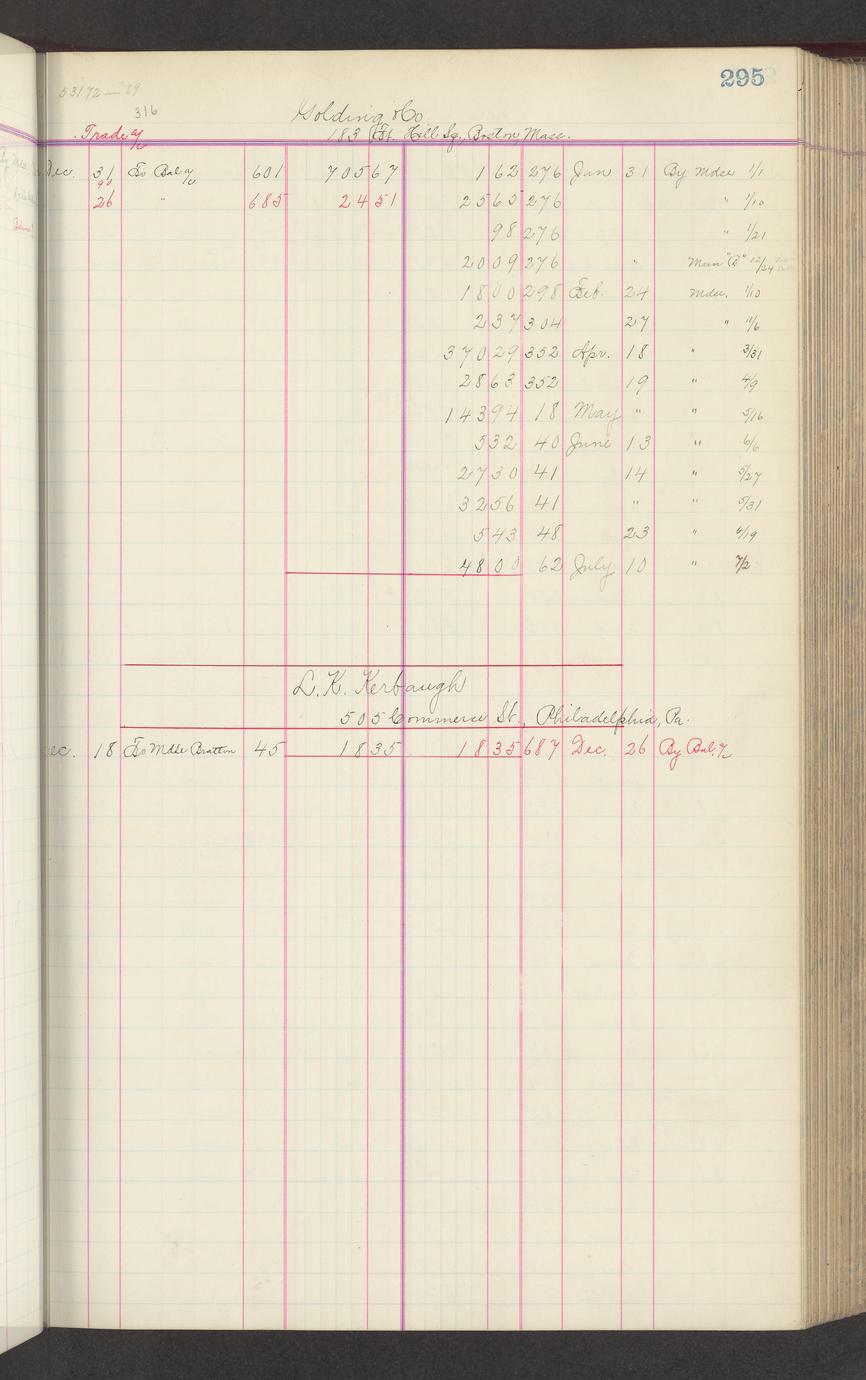 295
53172 in '89
316
Golding & Co.
Trade a/c 183 Ft. Hill Sq., Boston Mass.
Dec. 31 To Bal a/c 601 705 67 1 62 276 Jan 31 By Mdse 1/1
90
26 " 685 24 51 25 65 276 " 1/10
98 276 " 1/21
20 09 276 " Mem "B" 12/24
18 00 298 Feb. 24 Mdse. 1/10
2 37 304 27 " 1/6
370 29 352 Apr. 18 " 3/31
28 63 352 19 " 4/9
143 94 18 May " " 5/16
5 32 40 June 13 " 6/6
27 30 41 14 " 5/27
32 56 41 " " 5/31
5 43 48 23 " 6/19
48 00 62 July 10 " 7/2
L. K. Kerbaugh
505 Commerse St., Philadelphia, Pa.
ec. 18 To Mdse Bratton 45 18 35 18 35 687 Dec. 26 By Bal. a/c